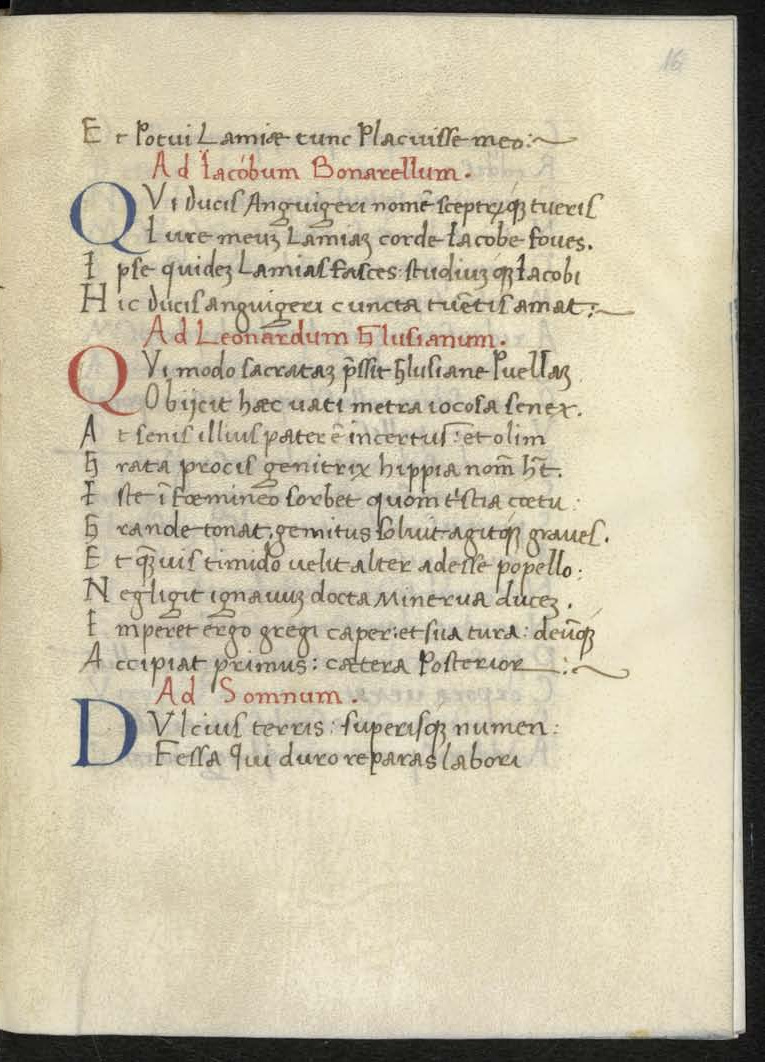 16
Et Potui Lamiæ tunc Placuisse meo:~
Ad Iacóbum Bonarellum.
QVi ducis Anguigeri nomē sceptrꝫq̃ tueris
Iure meuꝫ Lamiaꝫ corde Iacobe foues.
Ipse quideꝫ Lamias fasces: studiuꝫ q̃ꝫ Iacobi
Hic ducis anguigeri cuncta tuētis amat:~
Ad Leonardum Glusianum.
QVi modo sacrataꝫ p̄ssit Glusiane Puellaꝫ
Obijcit hæc uati metra iocosa senex.
At senis illius pater ē incertus: et olim
Grata procis genitrix hippia nom̄ h̄t.
Iste ī fœmineo sorbet quom t'stia cœtu:
Grande tonat: gemitus soluit agitqꝫ graues.
Et q̃uis timido uelit alter adesse popello:
Negligit ignauuꝫ docta Minerua duceꝫ.
Imperet ergo gregi caper: et sua tura: deūqꝫ
Accipiat primus: cætera Posterior:~
Ad Somnum.
DVlcius terris: superisqꝫ numen:
Fessa qui duro reparas labori